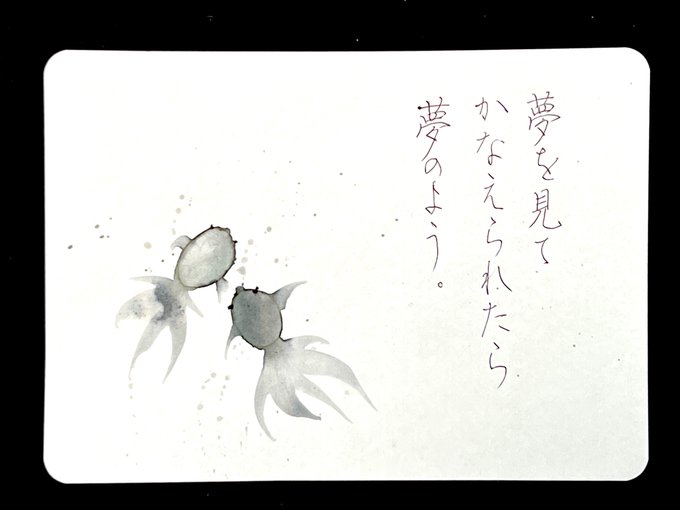 夢を見て
かなえられたら
夢のよう。